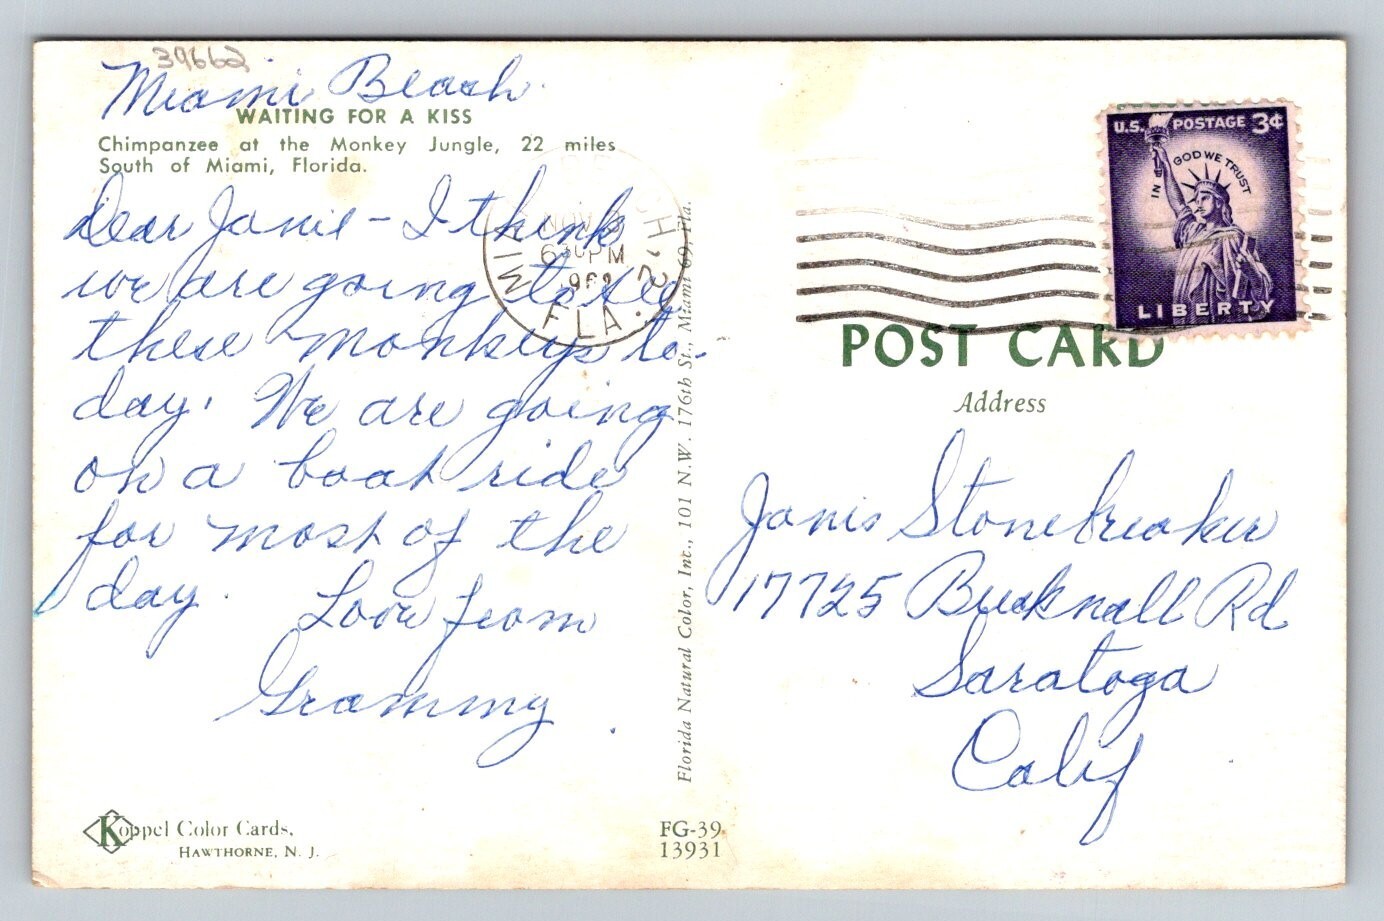 39662
Miami Beach
WAITING FOR A KISS
Chimpanzee at the Monkey Jungle, 22 miles
South of Miami, Florida.
Dear Janie - I think
we are going to see
these monkeys to-
day. We are going
on a boat ride
for most of the
day. Love from
Grammy
Koppel Color Cards,
HAWTHORNE, N. J.
Florida Natural Color, Inc., 101 N.W. 176th St., Miami 69, Fla.
FG-39
13931
MIAMI BEACH
NOV
6 30 PM
FLA.
U.S. POSTAGE 3¢
IN GOD WE TRUST
LIBERTY
POST CARD
Address
Janis Stonebreaker
17725 Bucknall Rd
Saratoga
Calif